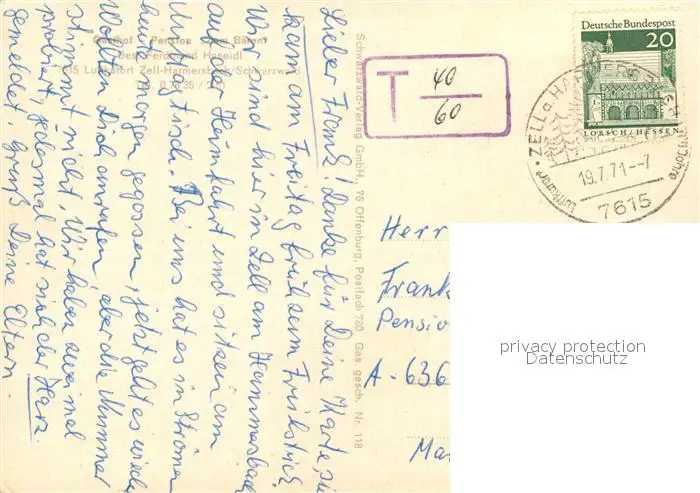 Lieber Frank! Danke für Deine Karte, sie
kam am Freitag früh zum Frühstück.
Wir sind hier in Zell am Hammersbach
auf der Heimfahrt und sitzen am
Mittagstisch. Bei uns hat es in Strömen
heut morgen gegossen, jetzt geht es wieder.
Wollten Dich anrufen, aber die Nummer
stimmt nicht. Wir haben zweimal
probiert, jedesmal hat sich der Harz
gemeldet. Gruß Deine Eltern.
Gasthof - Pension Bären
Bes. Ferdinand Haseidl
7615 Luftkurort Zell-Harmersbach/Schwarzwald
Schwarzwald-Verlag GmbH., 76 Offenburg, Postfach 780 Ges. gesch. Nr. 118
T 40
60
Deutsche Bundespost
20
LORSCH/HESSEN
ZELL a. HARMERSBACH
Luftkurort
Jahre
19.7.71.-7
7615
Herr
Frank
Pensio
A-636
Ma
privacy protection
Datenschutz